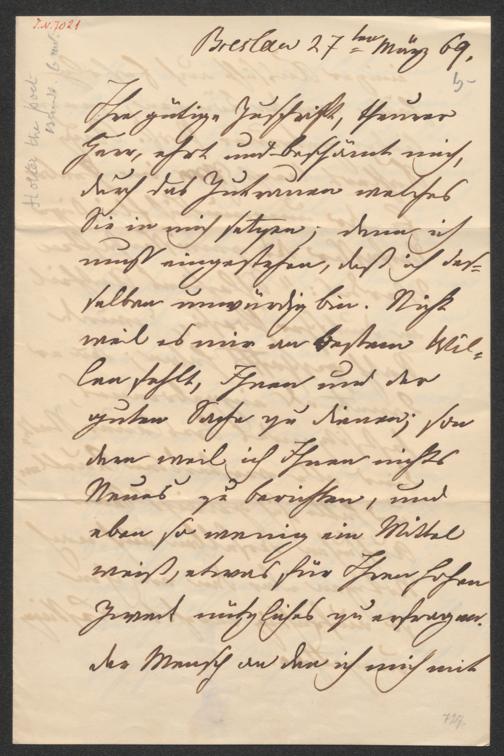 I.N. 7021
Holtei the poet
Breslau 27ten März 69.
5-
Ihre gütige Zuschrift, theurer
Herr, ehrt und beschämt mich,
durch das Zutrauen welches
Sie in mich setzen; denn ich
muß eingestehen, daß ich des=
selben unwürdig bin. Nicht
weil es mir an bestem Wil=
len fehlt, Ihnen und der
guten Sache zu dienen; son
dern weil ich Ihnen nichts
Neues zu berichten, und
eben so wenig ein Mittel
weiß, etwas für Ihren hohen
Zweck nützliches zu erfragen.
der Mensch an den ich mich mit